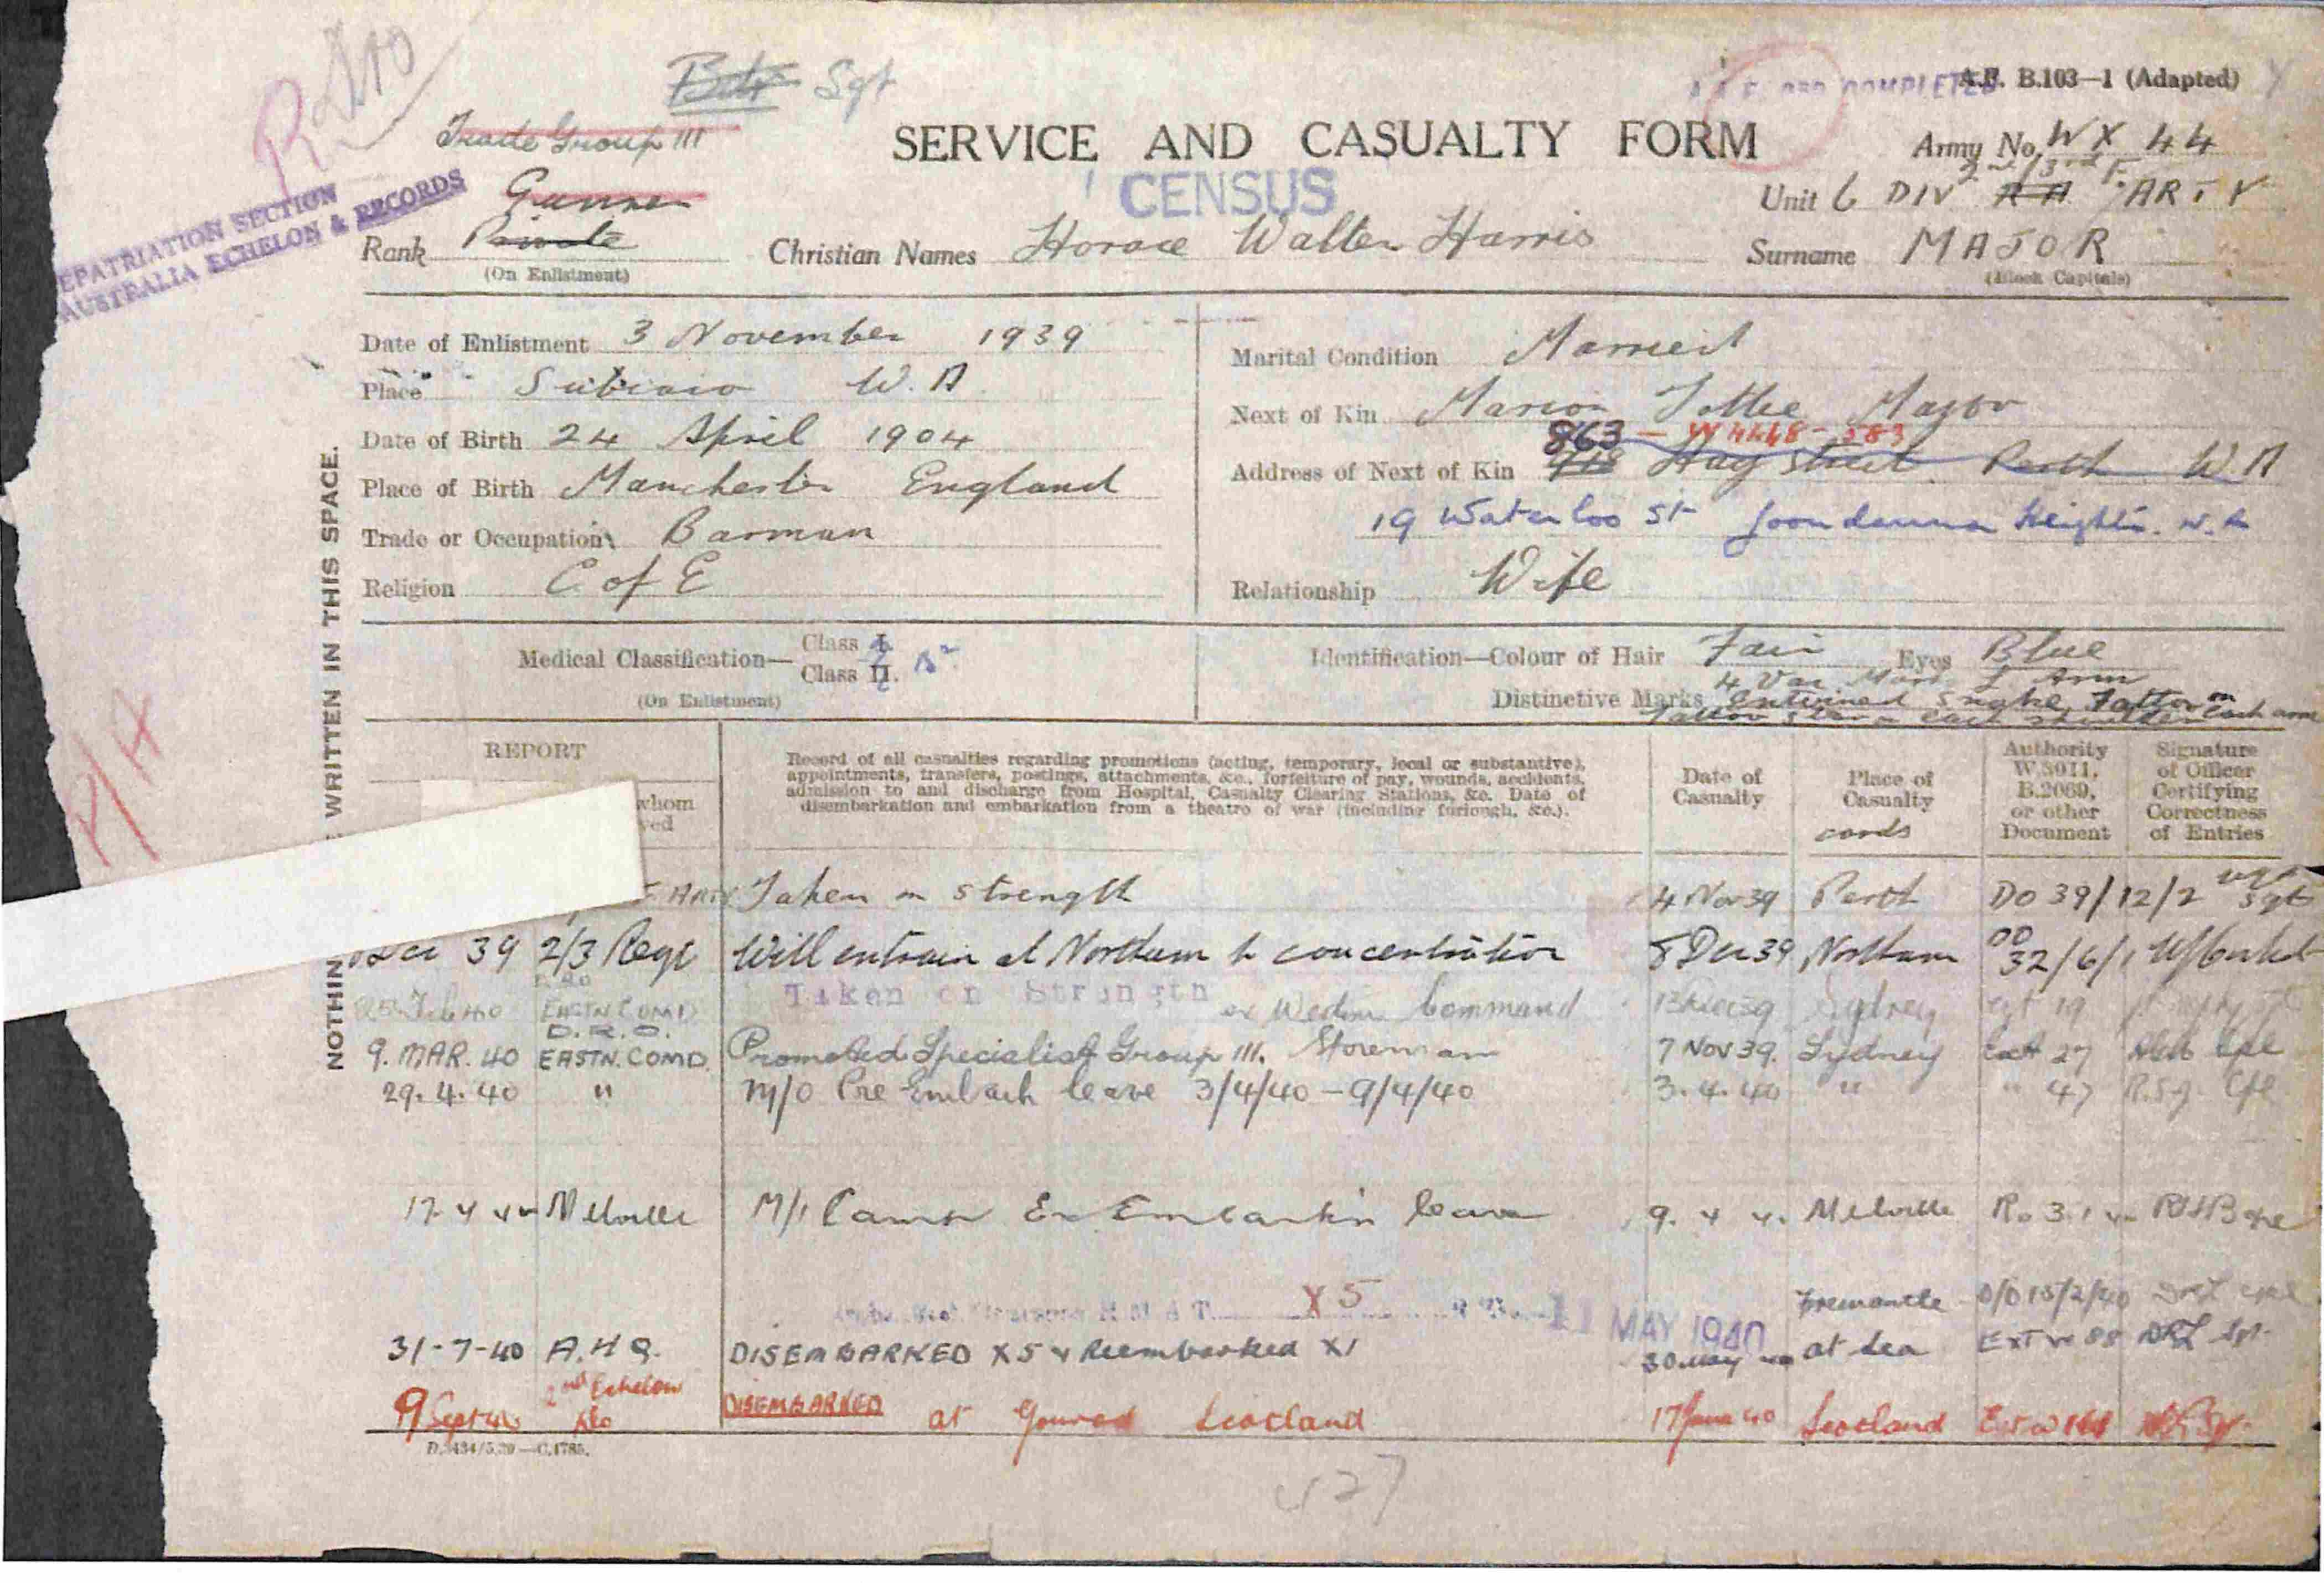 Bdr Sgt
A.F. B.103—1 (Adapted)
Trade Group III
SERVICE AND CASUALTY FORM
Army No. WX 44
CENSUS
REPATRIATION SECTION
AUSTRALIA ECHELON & RECORDS
Gunner
Unit 6 DIV RA ARTY
2nd/3rd F.
Rank Private
(On Enlistment)
Christian Names Horace Walter Harris
Surname MAJOR
(Block Capitals)
Date of Enlistment 3 November 1939
Place Subiaco W.A
Date of Birth 24 April 1904
Place of Birth Manchester England
Trade or Occupation Barman
Religion C of E
Marital Condition Married
Next of Kin Marion Major
863
Address of Next of Kin Hay Street Perth WA
19 Waterloo St Joondanna Heights. W.A
Relationship Wife
Medical Classification—
Class I.
Class II.
(On Enlistment)
Identification—Colour of Hair Fair Eyes Blue
4 Vac Marks L Arm
Distinctive Marks Entwined Snake Tattoo on each arm
Tattoo Star on each shoulder
NOTHING WRITTEN IN THIS SPACE.
REPORT
whom
Record of all casualties regarding promotions (acting, temporary, local or substantive),
appointments, transfers, postings, attachments, &c., forfeiture of pay, wounds, accidents,
admission to and discharge from Hospital, Casualty Clearing Stations, &c. Date of
disembarkation and embarkation from a theatre of war (including furlough, &c.).
Date of
Casualty
Place of
Casualty
cards
Authority
W.3011,
B.2069,
or other
Document
Signature
of Officer
Certifying
Correctness
of Entries
ARTY Taken on strength 4 Nov 39 Perth DO 39/12/2 Sgt
39 2/3 Regt Will entrain at Northam to concentration 8 Dec 39 Northam DO 32/6/1
Feb 40 EASTN COMD Taken on Strength ex Western Command 13 Dec 39 Sydney 19
D.R.O.
9. MAR. 40 EASTN. COMD. Promoted Specialist Group III. Storeman 7 Nov 39. Sydney 27 Cpl
29.4.40 " M/O Pre Embark leave 3/4/40 – 9/4/40 3.4.40 " " 47 R.S.J. Cpl
Melville M/I Camp Ex Embarkn leave 9. 4 Melville
X5
11 MAY 1940 Fremantle
31-7-40 A.H.Q. DISEMBARKED X5 & Reembarked X1 30 May 40 at sea
2nd Echelon
9 Sept 40 DISEMBARKED at Gourock Scotland 17 June 40 Scotland
D.3434/5.39—C.1785.
427